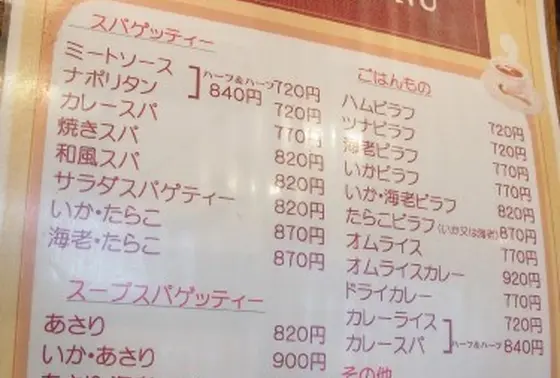 スパゲッティー
ミートソース 720円
ナポリタン ハーフ&ハーフ 840円 720円
カレースパ 770円
焼きスパ 820円
和風スパ 820円
サラダスパゲティー 820円
いか・たらこ 870円
海老・たらこ 870円
スープスパゲッティー
あさり 820円
いか・あさり 900円
ごはんもの
ハムピラフ 720円
ツナピラフ 720円
海老ピラフ 770円
いかピラフ 770円
いか・海老ピラフ 820円
たらこピラフ(いか又は海老) 870円
オムライス 770円
オムライスカレー 920円
ドライカレー 770円
カレーライス 720円
カレースパ ハーフ&ハーフ 840円
その他